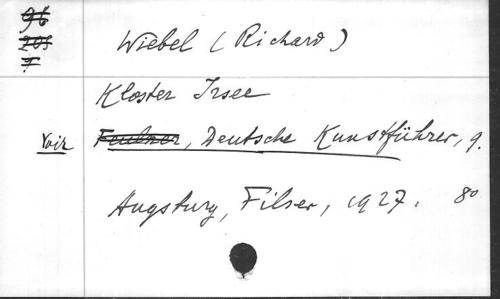 96
205
7
Wiebel (Richard)
Kloster Irsee
Voir Feulner, Deutsche Kunstführer, 9.
Augsburg, Filser, 1927. 8o